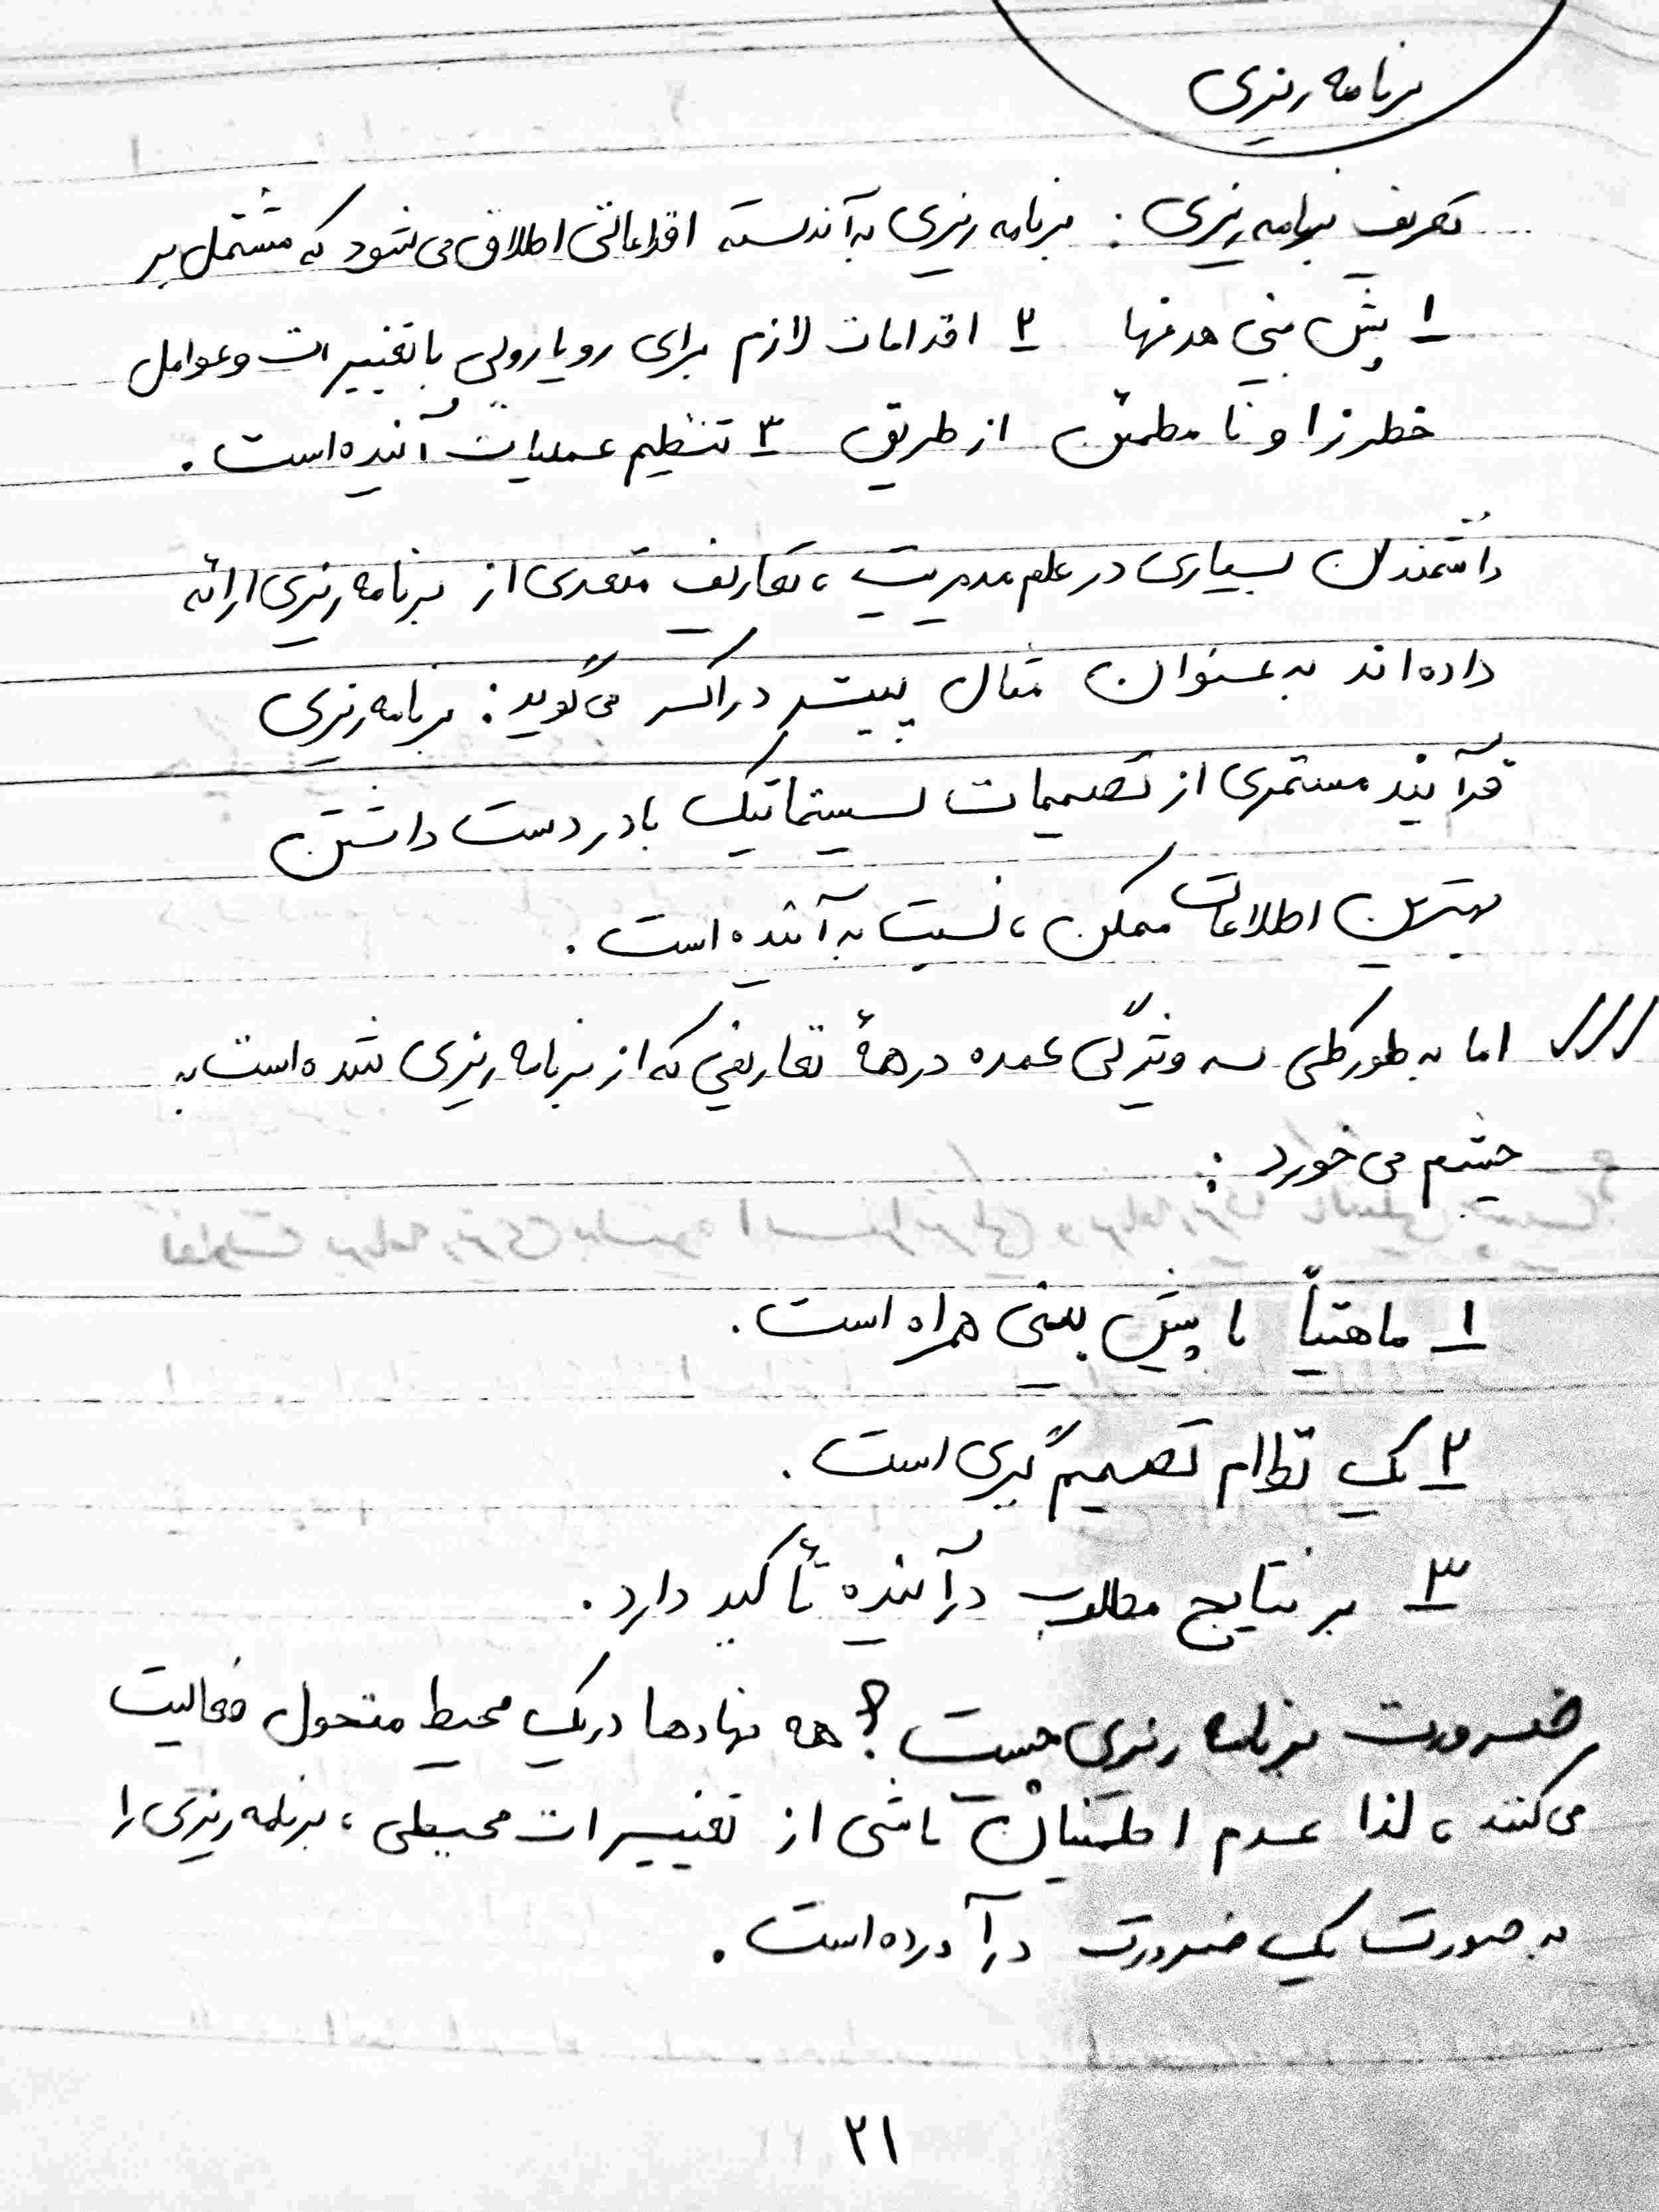 برنامه ریزی
تعریف برنامه ریزی : برنامه ریزی به آندسته اقداماتی اطلاق می شود که مشتمل بر
۱ پیش بینی هدفها ۲ اقدامات لازم برای رویارویی با تغییرات و عوامل
خطرزا و نا مطمئن از طریق ۳ تنظیم عملیات آینده است .
دانشمندان بسیاری در علم مدیریت ، تعاریف متعددی از برنامه ریزی ارائه
داده اند به عنوان مثال پیتر دراکر می گوید : برنامه ریزی
فرآیند مستمری از تصمیمات سیستماتیک با در دست داشتن
بهترین اطلاعات ممکن ، نسبت به آینده است .
/// اما به طور کلی سه ویژگی عمده در همهٔ تعاریفی که از برنامه ریزی شده است به
چشم می خورد :
۱ ماهیتاً با پیش بینی همراه است .
۲ یک نظام تصمیم گیری است .
۳ بر نتایج مطلوب در آینده تأکید دارد .
ضرورت برنامه ریزی چیست ؟ همه نهادها در یک محیط متحول فعالیت
می کنند ، لذا عدم اطمینان ناشی از تغییرات محیطی ، برنامه ریزی را
به صورت یک ضرورت در آورده است .
۲۱